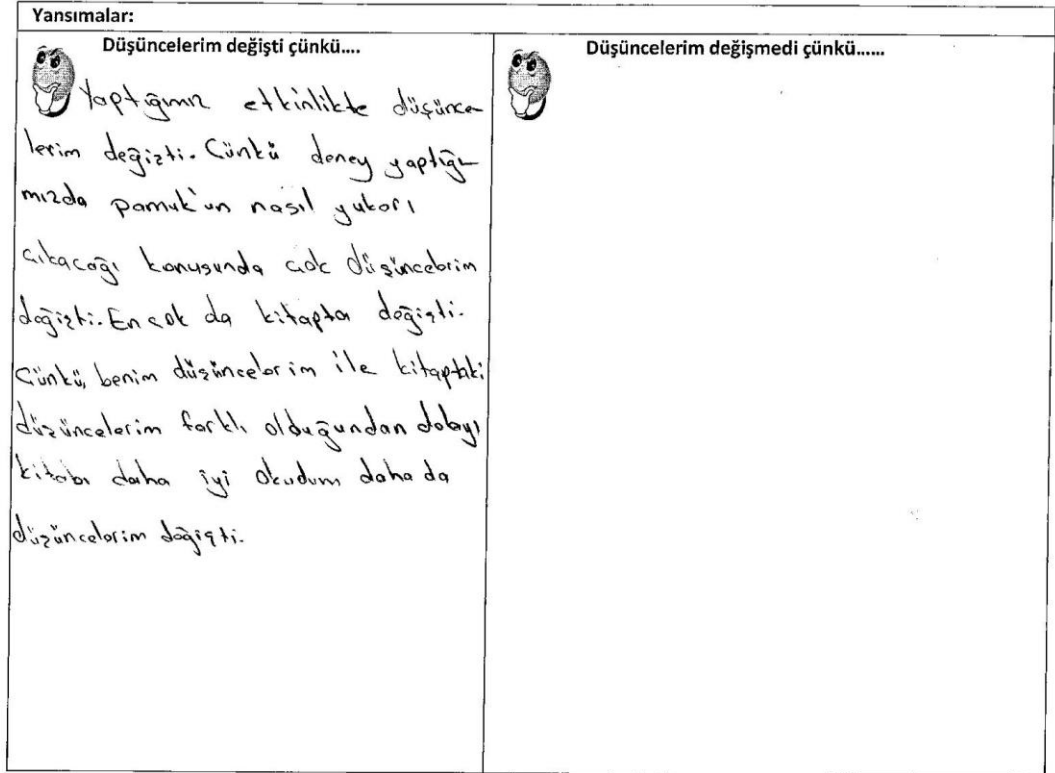 Yansımalar:
Düşüncelerim değişti çünkü....
Yaptığımız etkinlikte düşünce
lerim değişti. Çünkü deney yaptığı
mızda pamuk'un nasıl yukarı
çıkacağı konusunda çok düşüncelerim
değişti. En çok da kitapta değişti.
Çünkü, benim düşüncelerim ile kitaptaki
düşüncelerim farklı olduğundan dolayı
kitabı daha iyi okudum daha da
düşüncelerim değişti.
Düşüncelerim değişmedi çünkü......